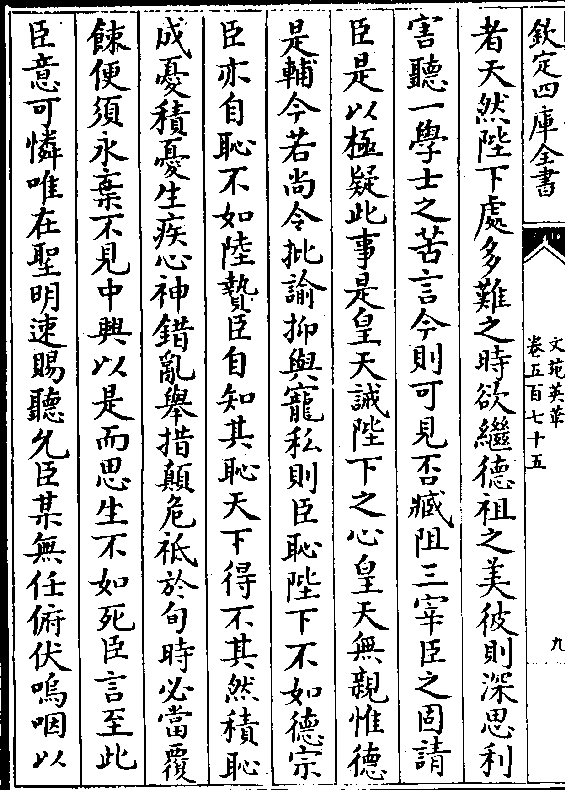 欽定四庫全書
文苑英華
卷五百七十五
九
者天然陛下處多難之時欲繼德祖之美彼則深思利
害聽一學士之苦言今則可見否臧阻三宰臣之固請
臣是以極疑此事是皇天誡陛下之心皇天無親惟德
是輔今若尚令批諭抑與寵私則臣恥陛下不如德宗
臣亦自恥不如陸贄臣自知其恥天下得不其然積恥
成憂積憂生疾心神錯亂舉措顛危祗於旬時必當覆
餗便須永棄不見中興以是而思生不如死臣言至此
臣意可憐唯在聖明速賜聽允臣某無任俯伏嗚咽以